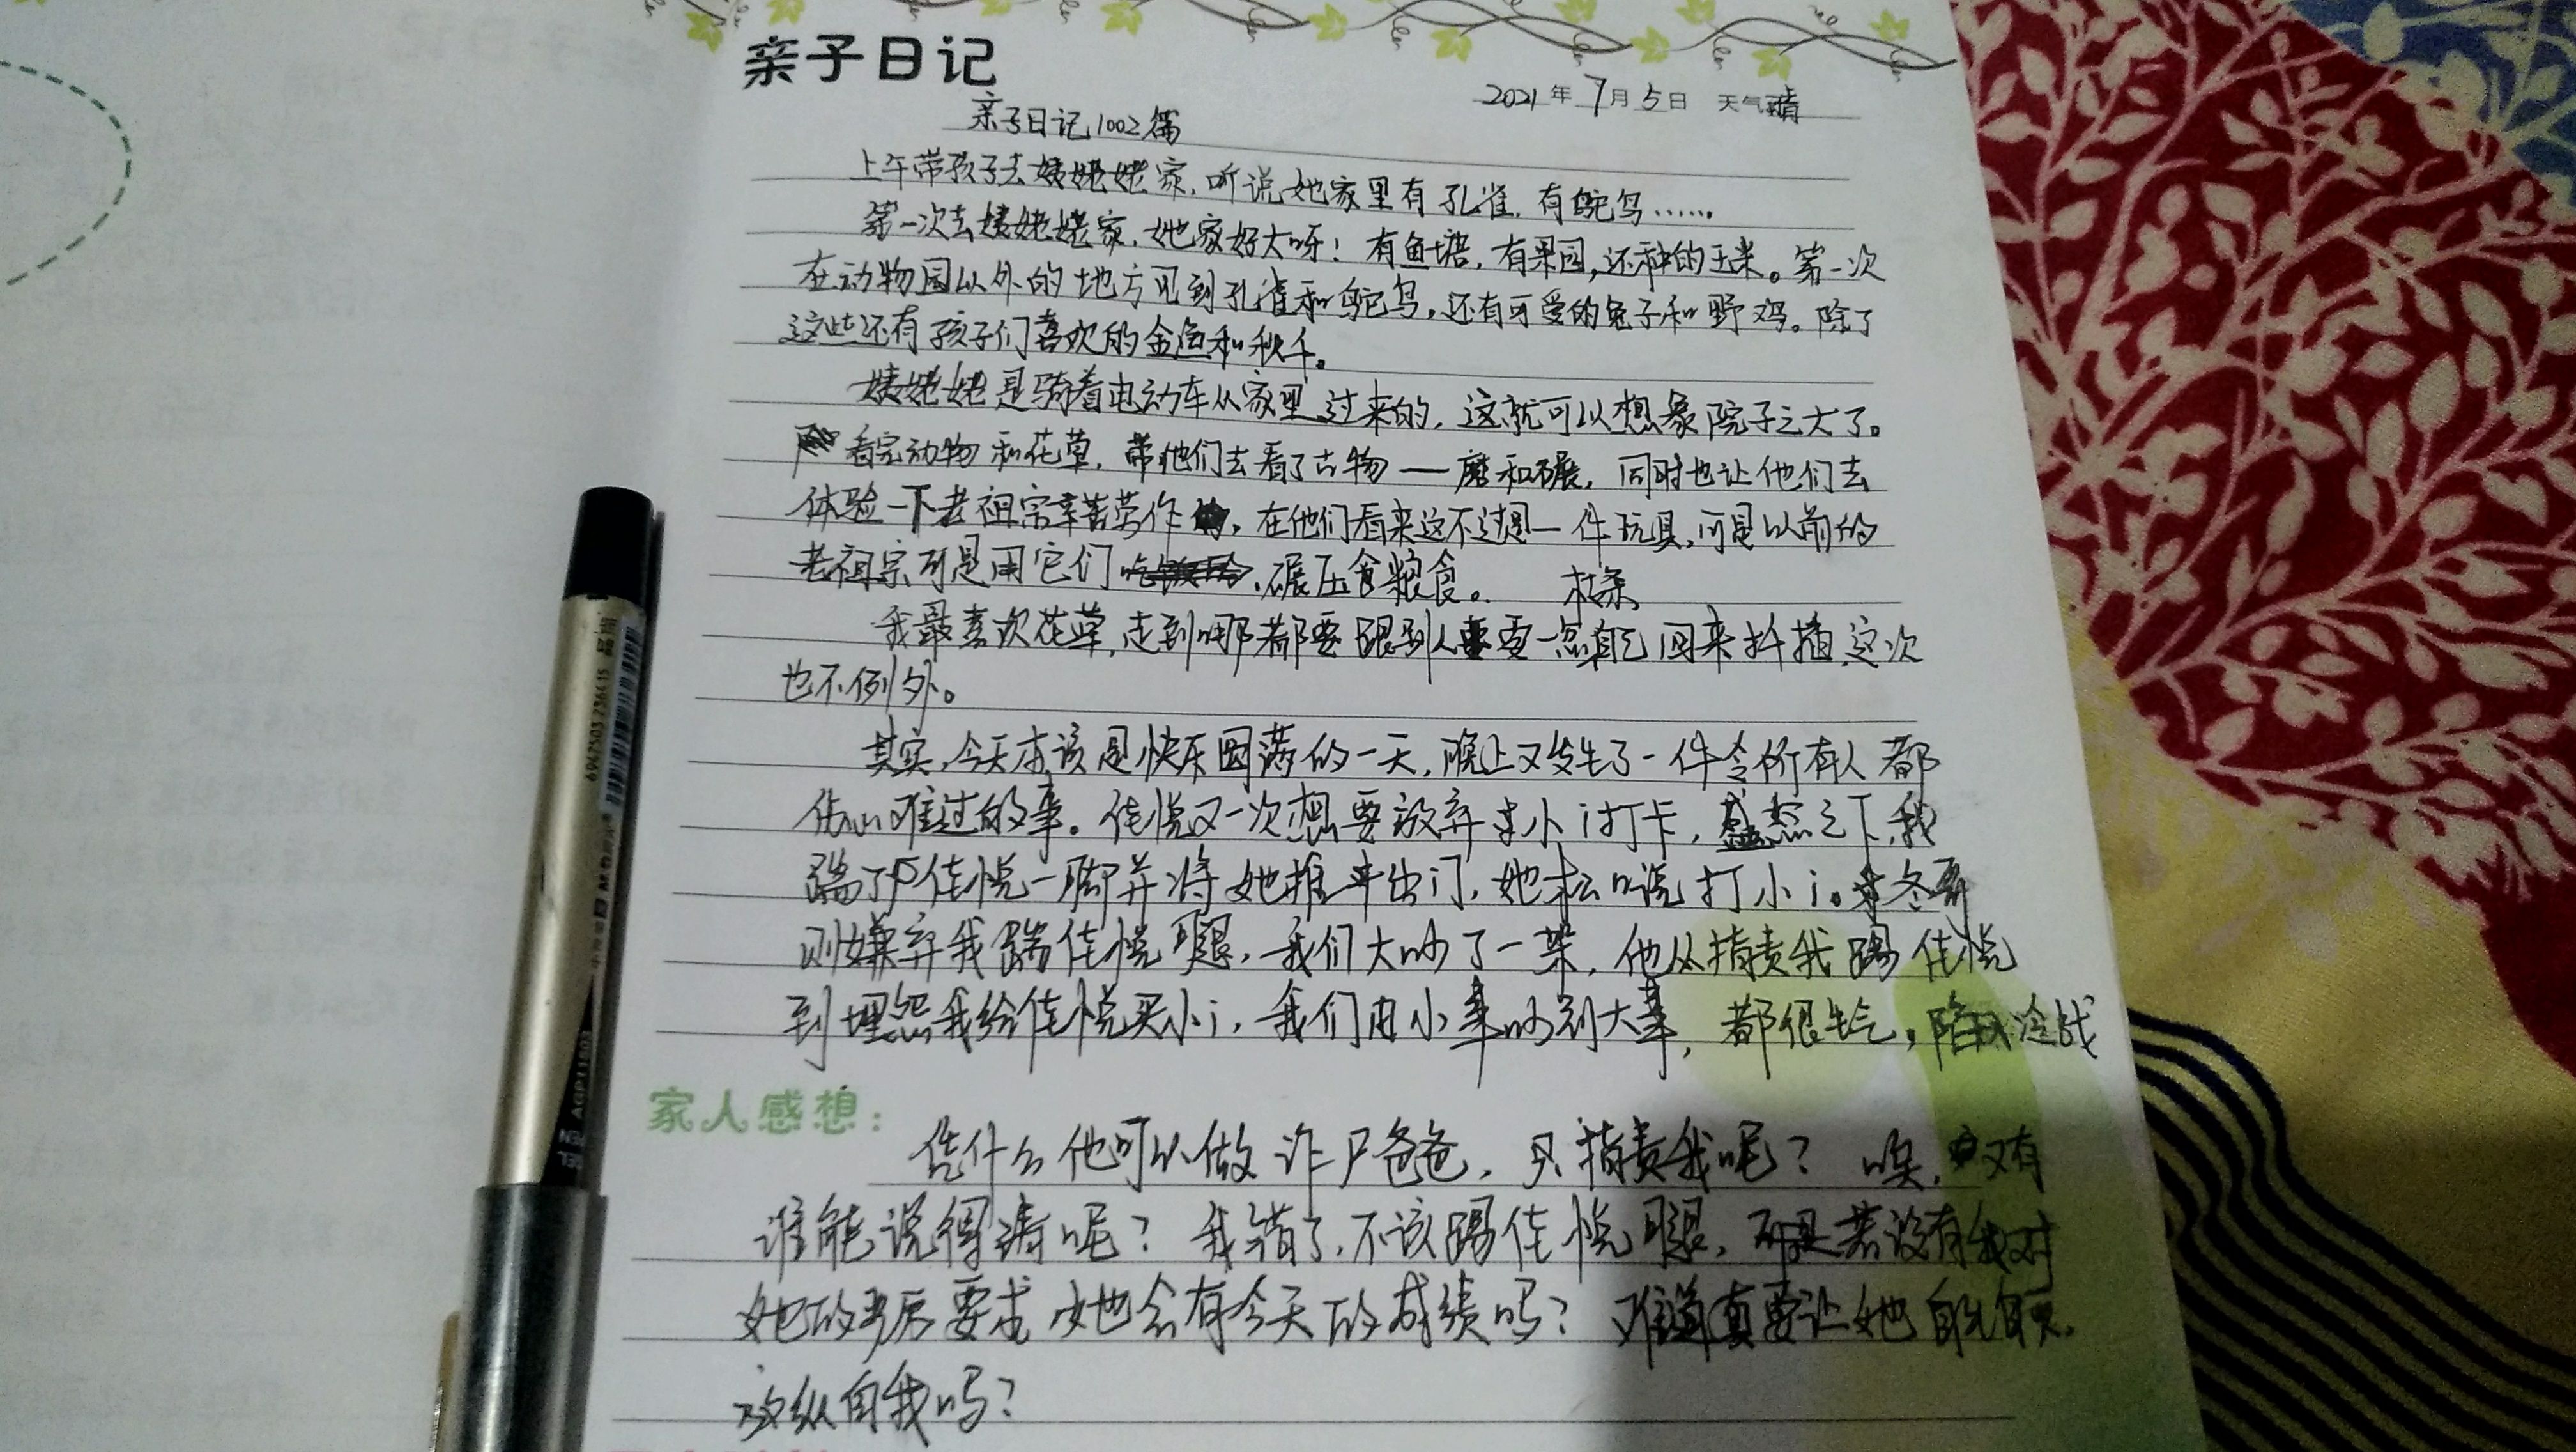 亲子日记
2021年7月5日 天气晴
亲子日记1002篇
上午带孩子去姨姥姥家,听说她家里有孔雀,有鸵鸟……
第一次去姨姥姥家,她家好大呀!有鱼塘,有果园,还种的玉米。第一次
在动物园以外的地方见到孔雀和鸵鸟,还有可爱的兔子和野鸡。除了
这些还有孩子们喜欢的金鱼和秋千。
姨姥姥是骑着电动车从家里过来的,这就可以想象院子之大了。
看完动物和花草,带他们去看了古物——磨和碾,同时也让他们去
体验一下老祖宗辛苦劳作,在他们看来这不过是一件玩具,可是以前的
老祖宗可是用它们,碾压食粮食。
我最喜欢花草,走到哪都要跟别人要一些自己回来扦插,这次
也不例外。
其实,今天本该是快乐圆满的一天,晚上又发生了一件令所有人都
伤心难过的事。佳悦又一次想要放弃小i打卡,之下,我
踹了佳悦一脚并将她推出门,她松口说打小i。冬哥
则嫌弃我踹佳悦腿,我们大吵了一架,他从指责我踢佳悦
到埋怨我给佳悦买小i,我们由小事吵到大事,都很生气,陷入冷战
家人感想:
凭什么他可以做诈尸爸爸,只指责我呢?唉,又有
谁能说得清呢?我错了,不该踢佳悦腿,可是若没有我对
她的严厉要求她会有今天的成绩吗?难道真要让她自
放纵自我吗?
6947503736415
AGP11503